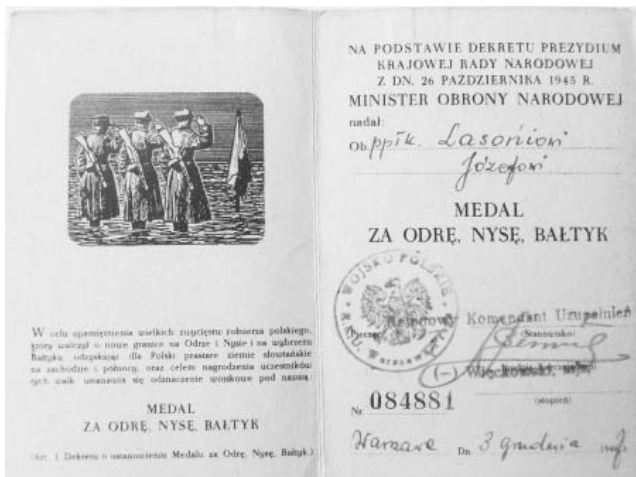 W celu upamiętnienia wielkich zwycięstw żołnierza polskiego,
który walczył o nowe granice na Odrze i Nysie i na wybrzeżu
Bałtyku, odzyskując dla Polski prastare ziemie słowiańskie
na zachodzie i północy, oraz celem nagrodzenia uczestników
tych walk ustanawia się odznaczenie wojskowe pod nazwą:
MEDAL
ZA ODRĘ, NYSĘ, BAŁTYK
(Art. 1 Dekretu o ustanowieniu Medalu za Odrę, Nysę, Bałtyk.)
NA PODSTAWIE DEKRETU PREZYDIUM
KRAJOWEJ RADY NARODOWEJ
Z DN. 26 PAŹDZIERNIKA 1945 R.
MINISTER OBRONY NARODOWEJ
nadał:
Ob. ppłk. Lasoniowi
Józefowi
MEDAL
ZA ODRĘ, NYSĘ, BAŁTYK
WOJSKO POLSKIE
Rejonowy Komendant Uzupełnień
(Stanowisko)
(—) Więckowski, mjr.
(stopień)
Nr. 084881
Warszawa Dn. 3 grudnia